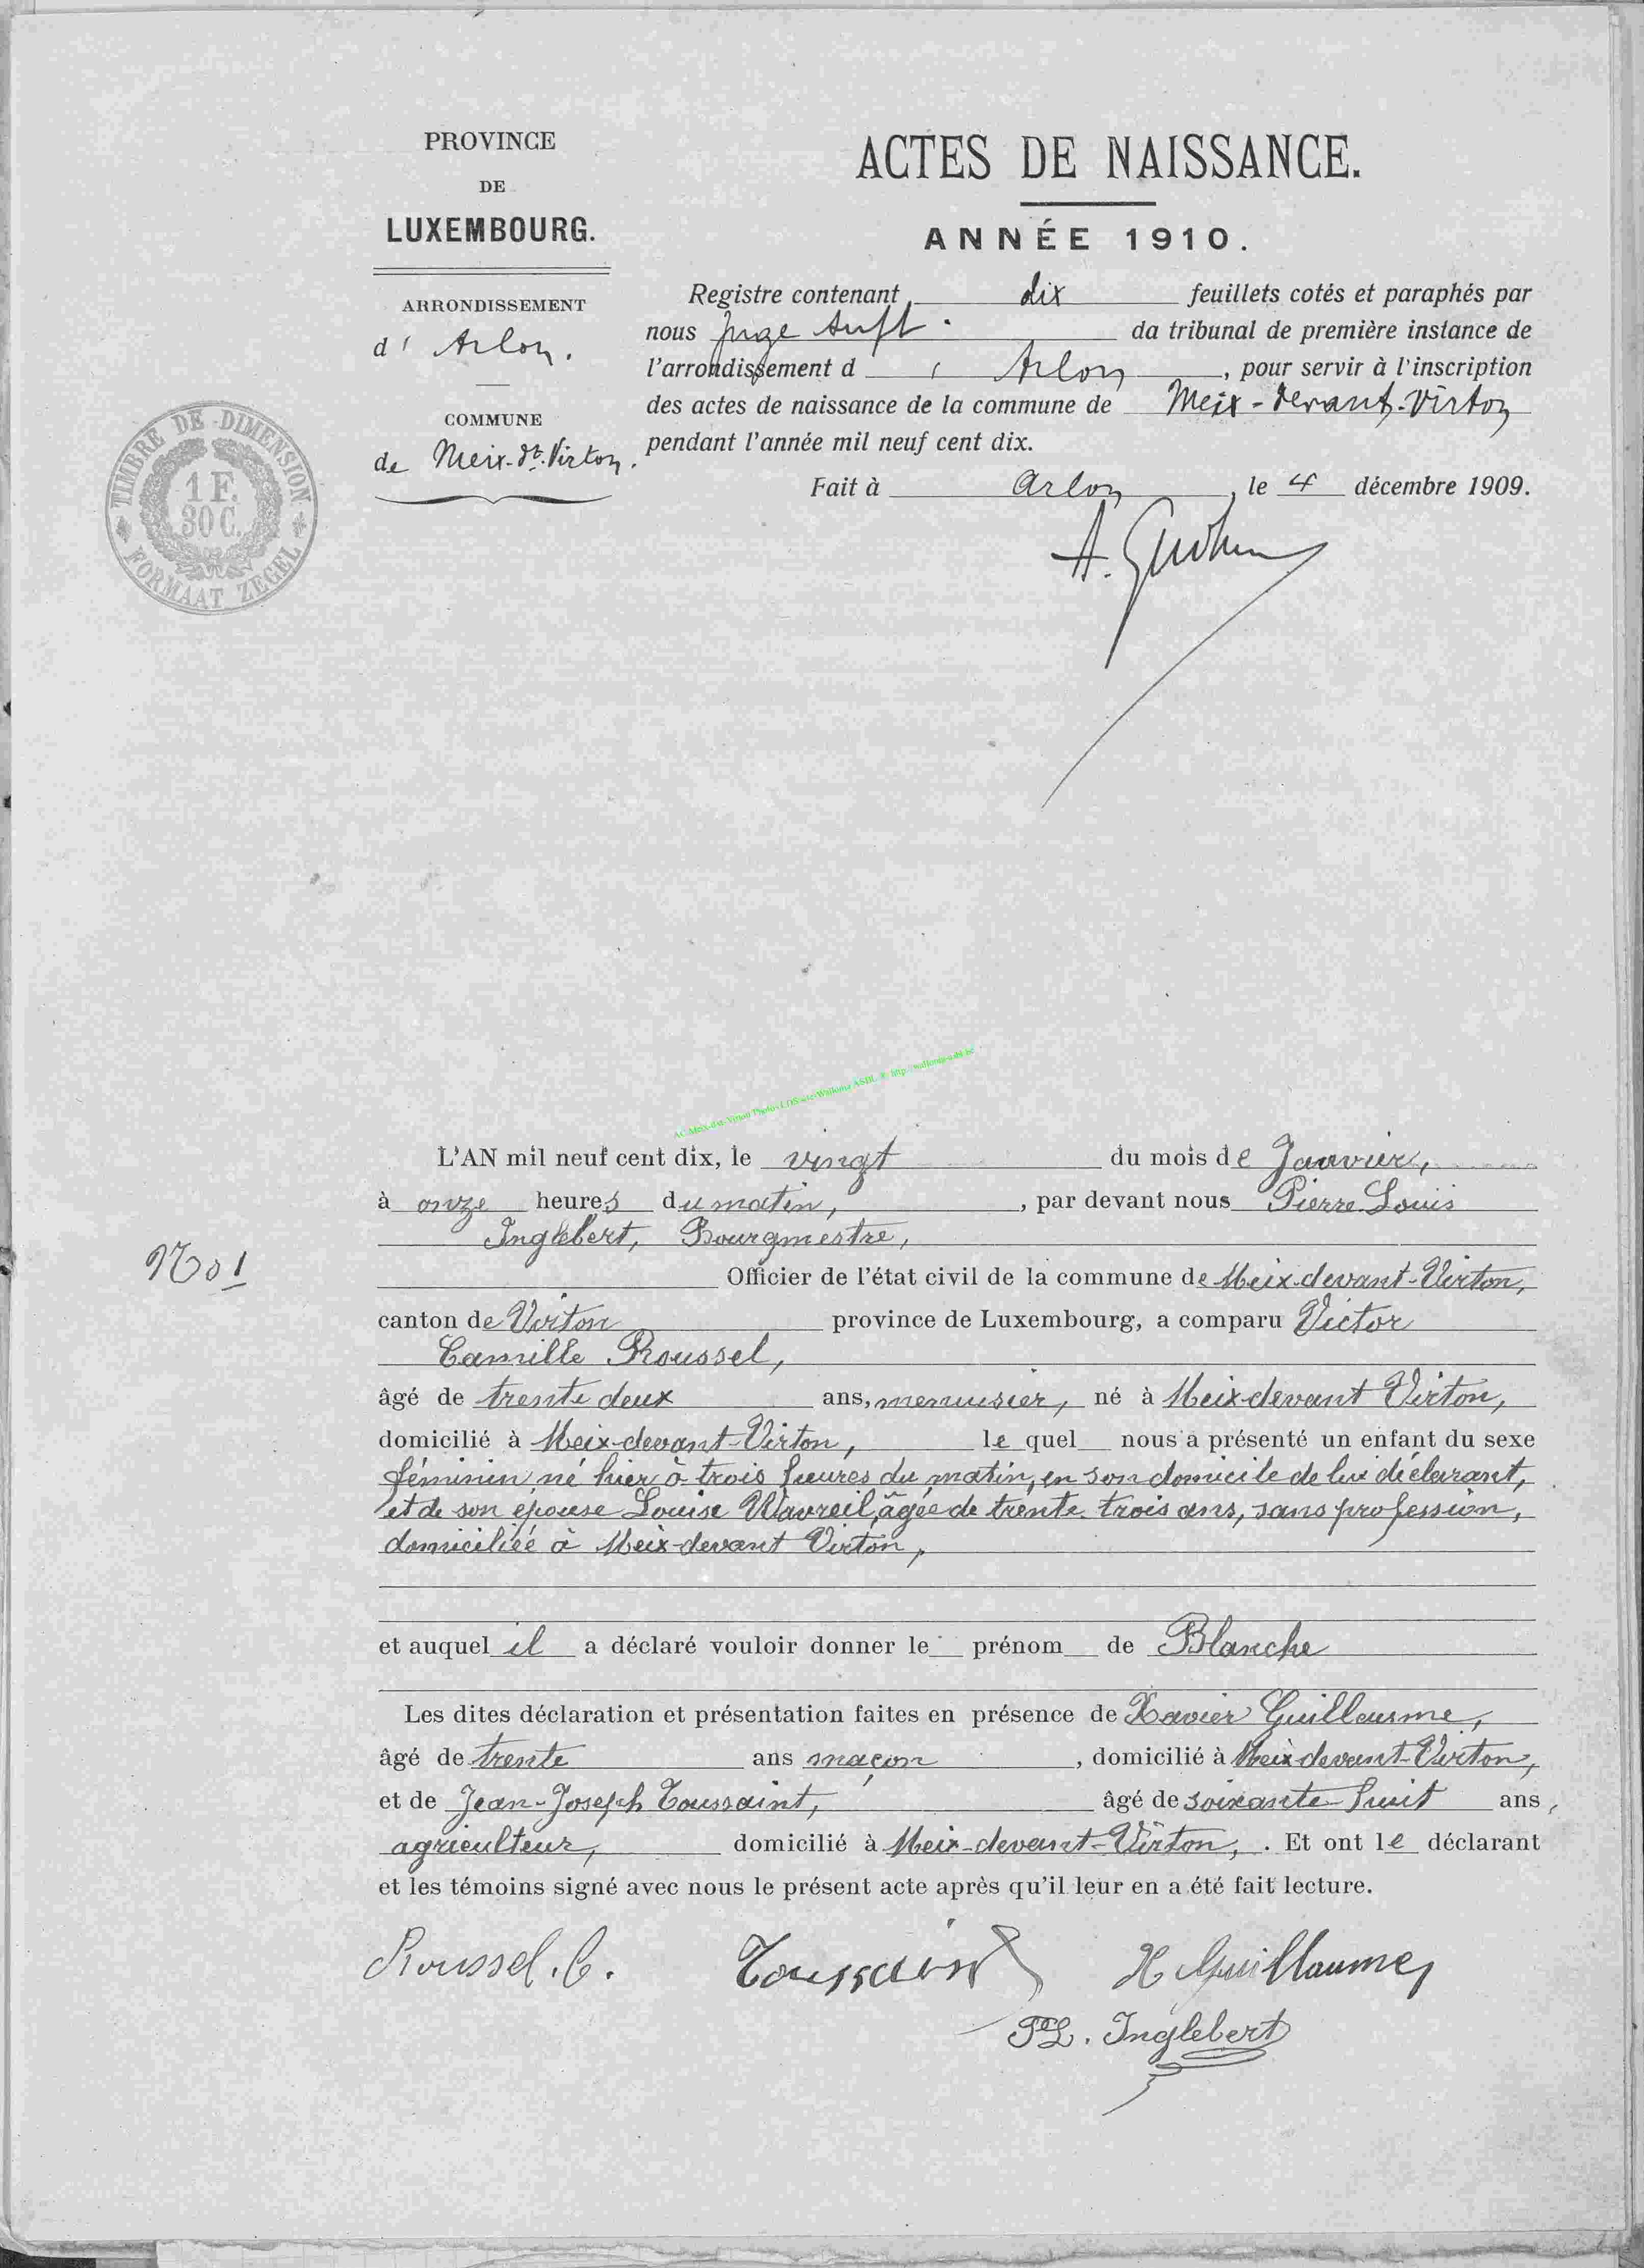 PROVINCE
DE
LUXEMBOURG.
ARRONDISSEMENT
d' Arlon.
COMMUNE
de Meix-dt-Virton.
TIMBRE DE DIMENSION
1 F.
30 C.
FORMAAT ZEGEL
ACTES DE NAISSANCE.
ANNÉE 1910.
Registre contenant dix feuillets cotés et paraphés par
nous juge da tribunal de première instance de
l'arrondissement d ' Arlon, pour servir à l'inscription
des actes de naissance de la commune de Meix-devant-Virton
pendant l'année mil neuf cent dix.
Fait à Arlon, le 4 décembre 1909.
No 1
L'AN mil neuf cent dix, le vingt du mois de Janvier,
à onze heures du matin, , par devant nous Pierre Louis
Inglebert, Bourgmestre,
Officier de l'état civil de la commune de Meix-devant-Virton,
canton de Virton province de Luxembourg, a comparu Victor
Camille Roussel,
âgé de trente deux ans, menuisier, né à Meix devant Virton,
domicilié à Meix-devant-Virton, le quel nous a présenté un enfant du sexe
féminin, né hier à trois heures du matin, en son domicile de lui déclarant,
et de son épouse Louise Wavreil, âgée de trente trois ans, sans profession,
domiciliée à Meix-devant Virton,
et auquel il a déclaré vouloir donner le prénom de Blanche
Les dites déclaration et présentation faites en présence de Xavier Guillaume,
âgé de trente ans maçon , domicilié à Meix devant-Virton,
et de Jean-Joseph Toussaint, âgé de soixante-huit ans,
agriculteur, domicilié à Meix-devant-Virton, . Et ont le déclarant
et les témoins signé avec nous le présent acte après qu'il leur en a été fait lecture.
Roussel. C. Toussaint X Guillaume
PL. Inglebert